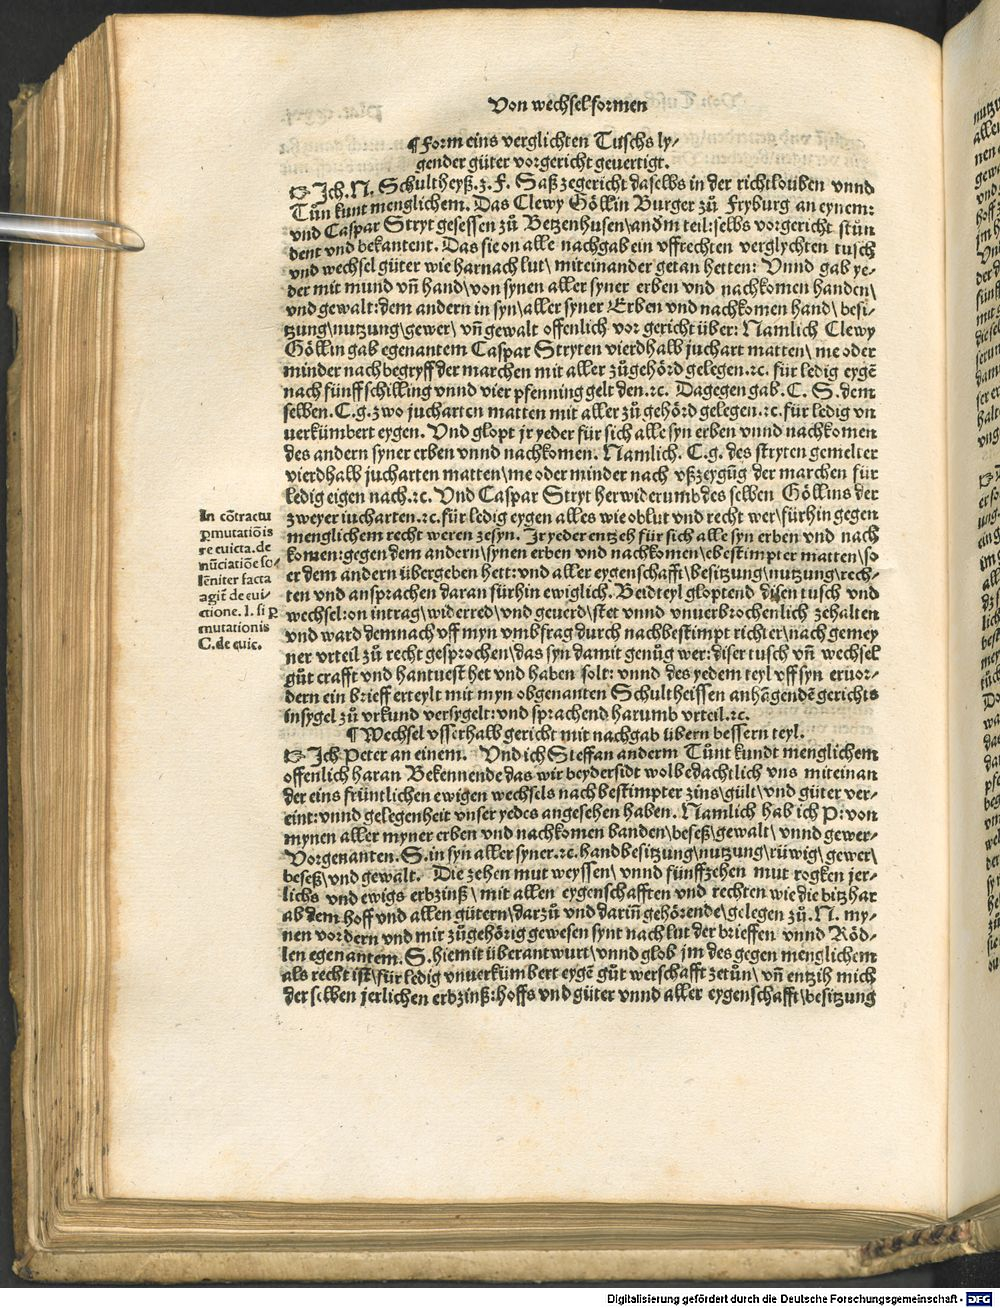 Von wechselformen
¶ Form eins verglichten Tuschs ly⸗
gender güter vorgericht geuertigt.
☞ Ich. N. Schultheyß. z. F. Saß zegericht daselbs in der richtlouben vnnd
Tün kunt menglichem. Das Clewy Göllin Burger zů Fryburg an eynem:
vnd Caspar Stryt gesessen zů Betzenhusen\andm teil: selbs vorgericht stůn
dent vnd bekantent. Das sie on alle nachgab ein vffrechten verglychten tusch
vnd wechsel güter wie harnach lut\ miteinander getan hetten: Vnnd gab ye⸗
der mit mund vñ hand\von synen aller syner erben vnd nachkomen handen\
vnd gewalt: dem andern in syn\aller syner Erben vnd nachkomen hand\ besi⸗
tzung\nutzung\gewer\ vñ gewalt offenlich vor gericht über: Namlich Clewy
Göllin gab egenantem Caspar Stryten vierdhalb juchart matten\ me oder
minder nach begryff der marchen mit aller zůgehörd gelegen.ꝛc. für ledig eygē
nach fünff schilling vnnd vier pfenning gelt den.ꝛc. Dagegen gab. C. S. dem
selben. C.g. zwo jucharten matten mit aller zůgehörd gelegen.ꝛc. für ledig vn
uerkümbert eygen. Vnd glopt jr yeder für sich alle syn erben vnnd nachkomen
des andern syner erben vnnd nachkomen. Namlich. C.g. des stryten gemelter
vierdhalb jucharten matten\me oder minder nach vßzeygūg der marchen für
ledig eigen nach.ꝛc. Vnd Caspar Stryt herwiderumb des selben Göllins der
zweyer iucharten.ꝛc. für ledig eygen alles wie oblut vnd recht wer\fürhin gegen
menglichem recht weren zesyn. Jr yeder entzeh für sich alle syn erben vnd nach
komen: gegen dem andern\synen erben vnd nachkomen\ebestimpter matten\so
er dem andern übergeben hett: vnd aller eygenschafft\besitzung\nutzung\rech⸗
ten vnd ansprachen daran fürhin ewiglich. Beidteyl gloptend disen tusch vnd
wechsel: on intrag\widerred\vnd geuerd\stet vnnd vnuerbrochenlich zehalten
vnd ward demnach vff myn vmbfrag durch nachbestimpt richter\nach gemey
ner vrteil zů recht gesprochen\das syn damit genůg wer: diser tusch vñ wechsel
gůt crafft vnd hantuest het vnd haben solt: vnnd des yedem teyl vff syn eruor⸗
dern ein brieff erteylt mit myn obgenanten Schultheissen anhēgendē gerichts
insygel zů vrkund versygelt: vnd sprachend harumb vrteil.ꝛc.
In cōtractu
ꝑmutatiōis
re euicta. de
nūciatiōe so⸗
lēniter facta
agit̄ de eui⸗
ctione. l. si ꝑ
mutationis
C. de euic.
¶ Wechsel vsserhalb gericht mit nachgab übern bessern teyl.
☞ Ich Peter an einem. Vnd ich Steffan anderm Tünt kundt menglichem
offenlich haran Bekennende das wir beydersidt wolbedachtlich vns miteinan
der eins früntlichen ewigen wechsels nachbestimpter zins\gült\vnd güter ver⸗
eint: vnnd gelegenheit vnser yedes angesehen haben. Namlich hab ich P: von
mynen aller myner erben vnd nachkomen banden\beseß\gewalt\ vnnd gewer⸗
Vorgenanten. S. in syn aller syner.ꝛc. handbesitzung\nutzung\rüwig\gewer\
beseß\vnd gewalt. Die zehen mut weyssen\ vnnd fünffzehen mut rogken jer⸗
lichs vnd ewigs erbzinß\ mit allen eygenschafften vnd rechten wie die bitzhar
ab dem hoff vnd allen gütern\darzů vnd dariñ gehörende\gelegen zů. N. my⸗
nen vordern vnd mir zůgehörig gewesen synt nach lut der brieffen vnnd Röd⸗
len egenantem. S. hiemit überantwurt\ vnnd glob im des gegen menglichem
als recht ist\für ledig vnuerkümbert eygē gůt werschafft zetůn\ vñ entzih mich
der selben jerlichen erbzinß: hoffs vnd güter vnnd aller eygenschafft\besitzung
Digitalisierung gefördert durch die Deutsche Forschungsgemeinschaft - DFG